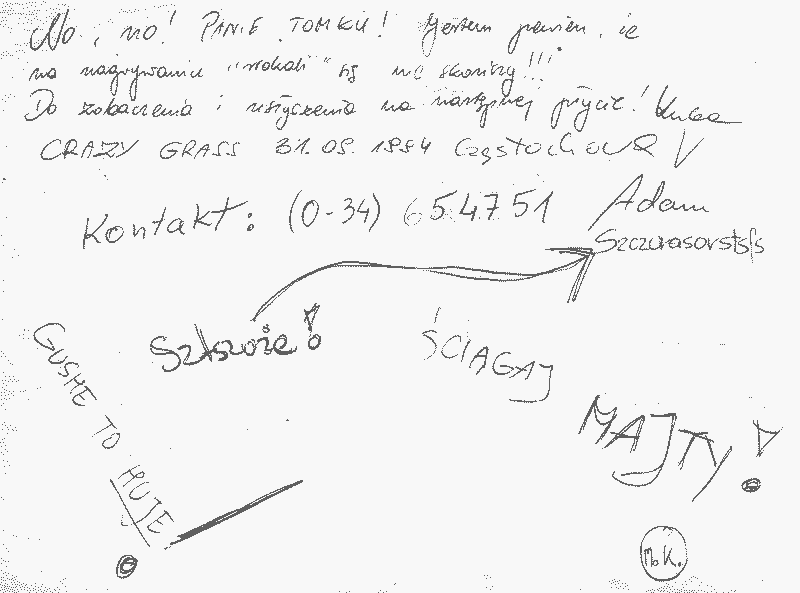 No, no! PANIE TOMKU! Jestem pewien, że
na nagrywaniu "wokali" się nie skończy!!!
Do zobaczenia i usłyszenia na następnej płycie! Kuba
CRAZY GRASS 31.08. 1994 Częstochowa
Kontakt: (0-34) 654751 Adam
ŚCIĄGAJ
MAJTY!
GUSHE TO HUJE!
M.K.